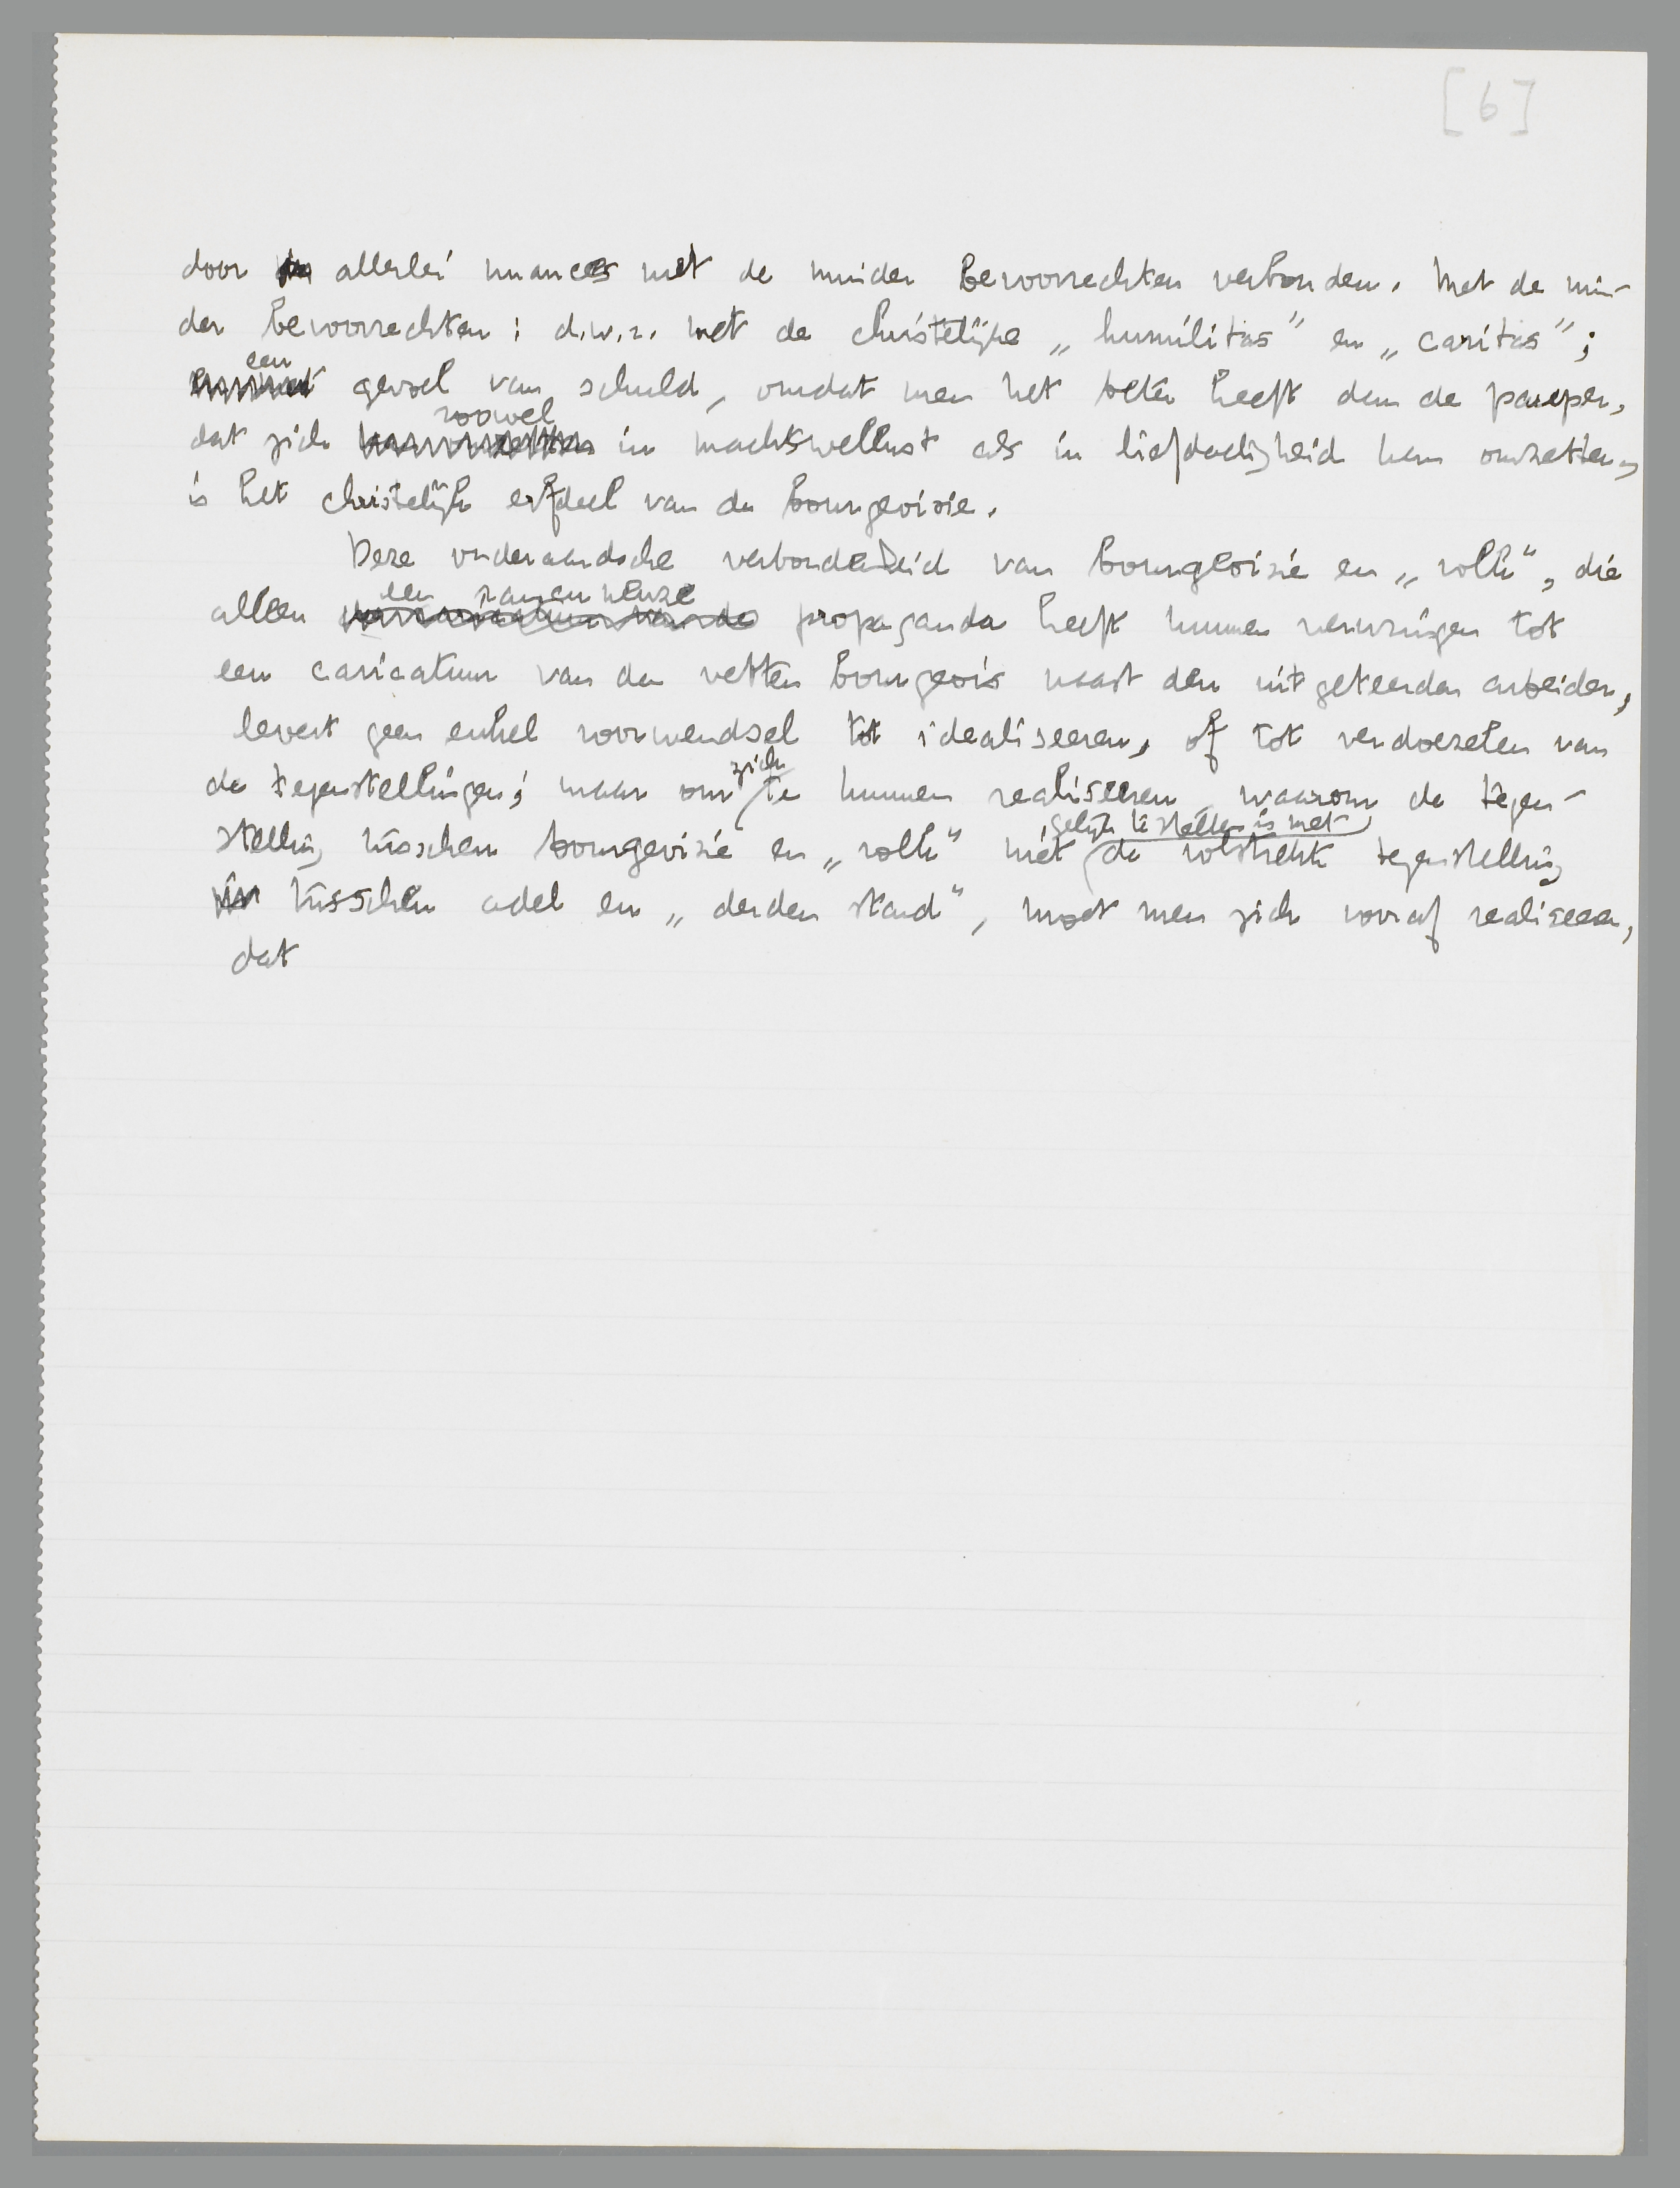 [6]
door allerlei nuances met de minder bevoorrechten verbonden. Met de min-
der bevoorrechten: d.w.z. met de christelijke „humilitas” en „caritas”;
een
gevoel van schuld, omdat men het beter heeft dan de pauper,
zoowel
dat zich kan omzetten in machtswellust als in liefdadigheid kan omzetten,
is het christelijk erfdeel van de bourgeoisie.
Deze onderaardsche verbondenheid van bourgeoisie en „volk”, die
een
alleen propaganda heeft kunnen verwringen tot
een caricatuur van den vetten bourgeois naast den uitgeteerden arbeider,
levert geen enkel voorwendsel tot idealiseeren, of tot verdoezelen van
zich
de tegenstellingen; maar om te kunnen realiseeren, waarom de tegen-
gelijk te stellen is met
stelling tusschen bourgeoisie en „volk” niet de volstrekte tegenstelling
tusschen adel en „derden stand”, moet men zich vooraf realiseeren,
dat